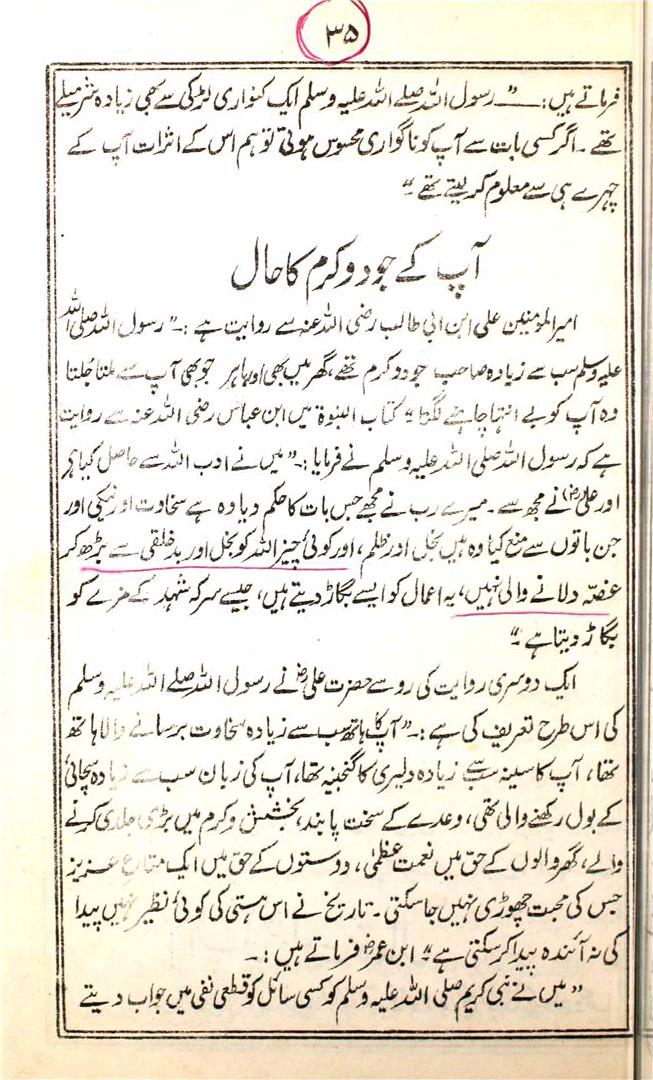 ۳۵
فرماتے ہیں:ــــ ”رسول اللہ صلے اللہ علیہ وسلم ایک کنواری لڑکی سے بھی زیادہ شرمیلے
تھے۔ اگر کسی بات سے آپ کو ناگواری محسوس ہوتی تو ہم اس کے اثرات آپ کے
چہرے ہی سے معلوم کر لیتے تھے۔“
آپ کے جود و کرم کا حال
امیر المومنین علی ابن ابی طالب رضی اللہ عنہ سے روایت ہے :۔ ”رسول اللہ صلی اللہ
علیہ وسلم سب سے زیادہ صاحب جود و کرم تھے، گھر میں بھی اور باہر جو بھی آپ سے ملتا جُلتا
وہ آپ کو بے انتہا چاہنے لگتا“ کتاب النبوۃ میں ابن عباس رضی اللہ عنہ سے روایت
ہے کہ رسول اللہ صلی اللہ علیہ وسلم نے فرمایا :۔ ”میں نے ادب اللہ سے حاصل کیا ہے
اور علی رض نے مجھ سے۔ میرے رب نے مجھے جس بات کا حکم دیا وہ ہے سخاوت اور نیکی اور
جن باتوں سے منع کیا وہ ہیں بخل اور ظلم، اور کوئی چیز اللہ کو بخل اور بد خلقی سے بڑھ کر
غصّہ دلانے والی نہیں، یہ اعمال کو ایسے بگاڑ دیتے ہیں، جیسے سرکہ شہد کے مزے کو
بگاڑ دیتا ہے۔“
ایک دوسری روایت کی رو سے حضرت علی رض نے رسول اللہ صلے اللہ علیہ وسلم
کی اس طرح تعریف کی ہے :۔ ”آپ کا ہاتھ سب سے زیادہ سخاوت برسانے والا ہاتھ
تھا، آپ کا سینہ سب سے زیادہ دلیری کا گنجینہ تھا، آپ کی زبان سب سے زیادہ سچائی
کے بول رکھنے والی تھی، وعدے کے سخت پابند، بخشش و کرم میں بڑی جلدی کرنے
والے، گھر والوں کے حق میں نعمت عظمیٰ، دوستوں کے حق میں ایک متاع عزیز
جس کی محبت چھوڑی نہیں جا سکتی۔ تاریخ نے اس ہستی کی کوئی نظیر نہیں پیدا
کی نہ آئندہ پیدا کر سکتی ہے“ ابن عمر رض فرماتے ہیں :۔
”میں نے نبی کریم صلی اللہ علیہ وسلم کو کسی سائل کو قطعی نفی میں جواب دیتے